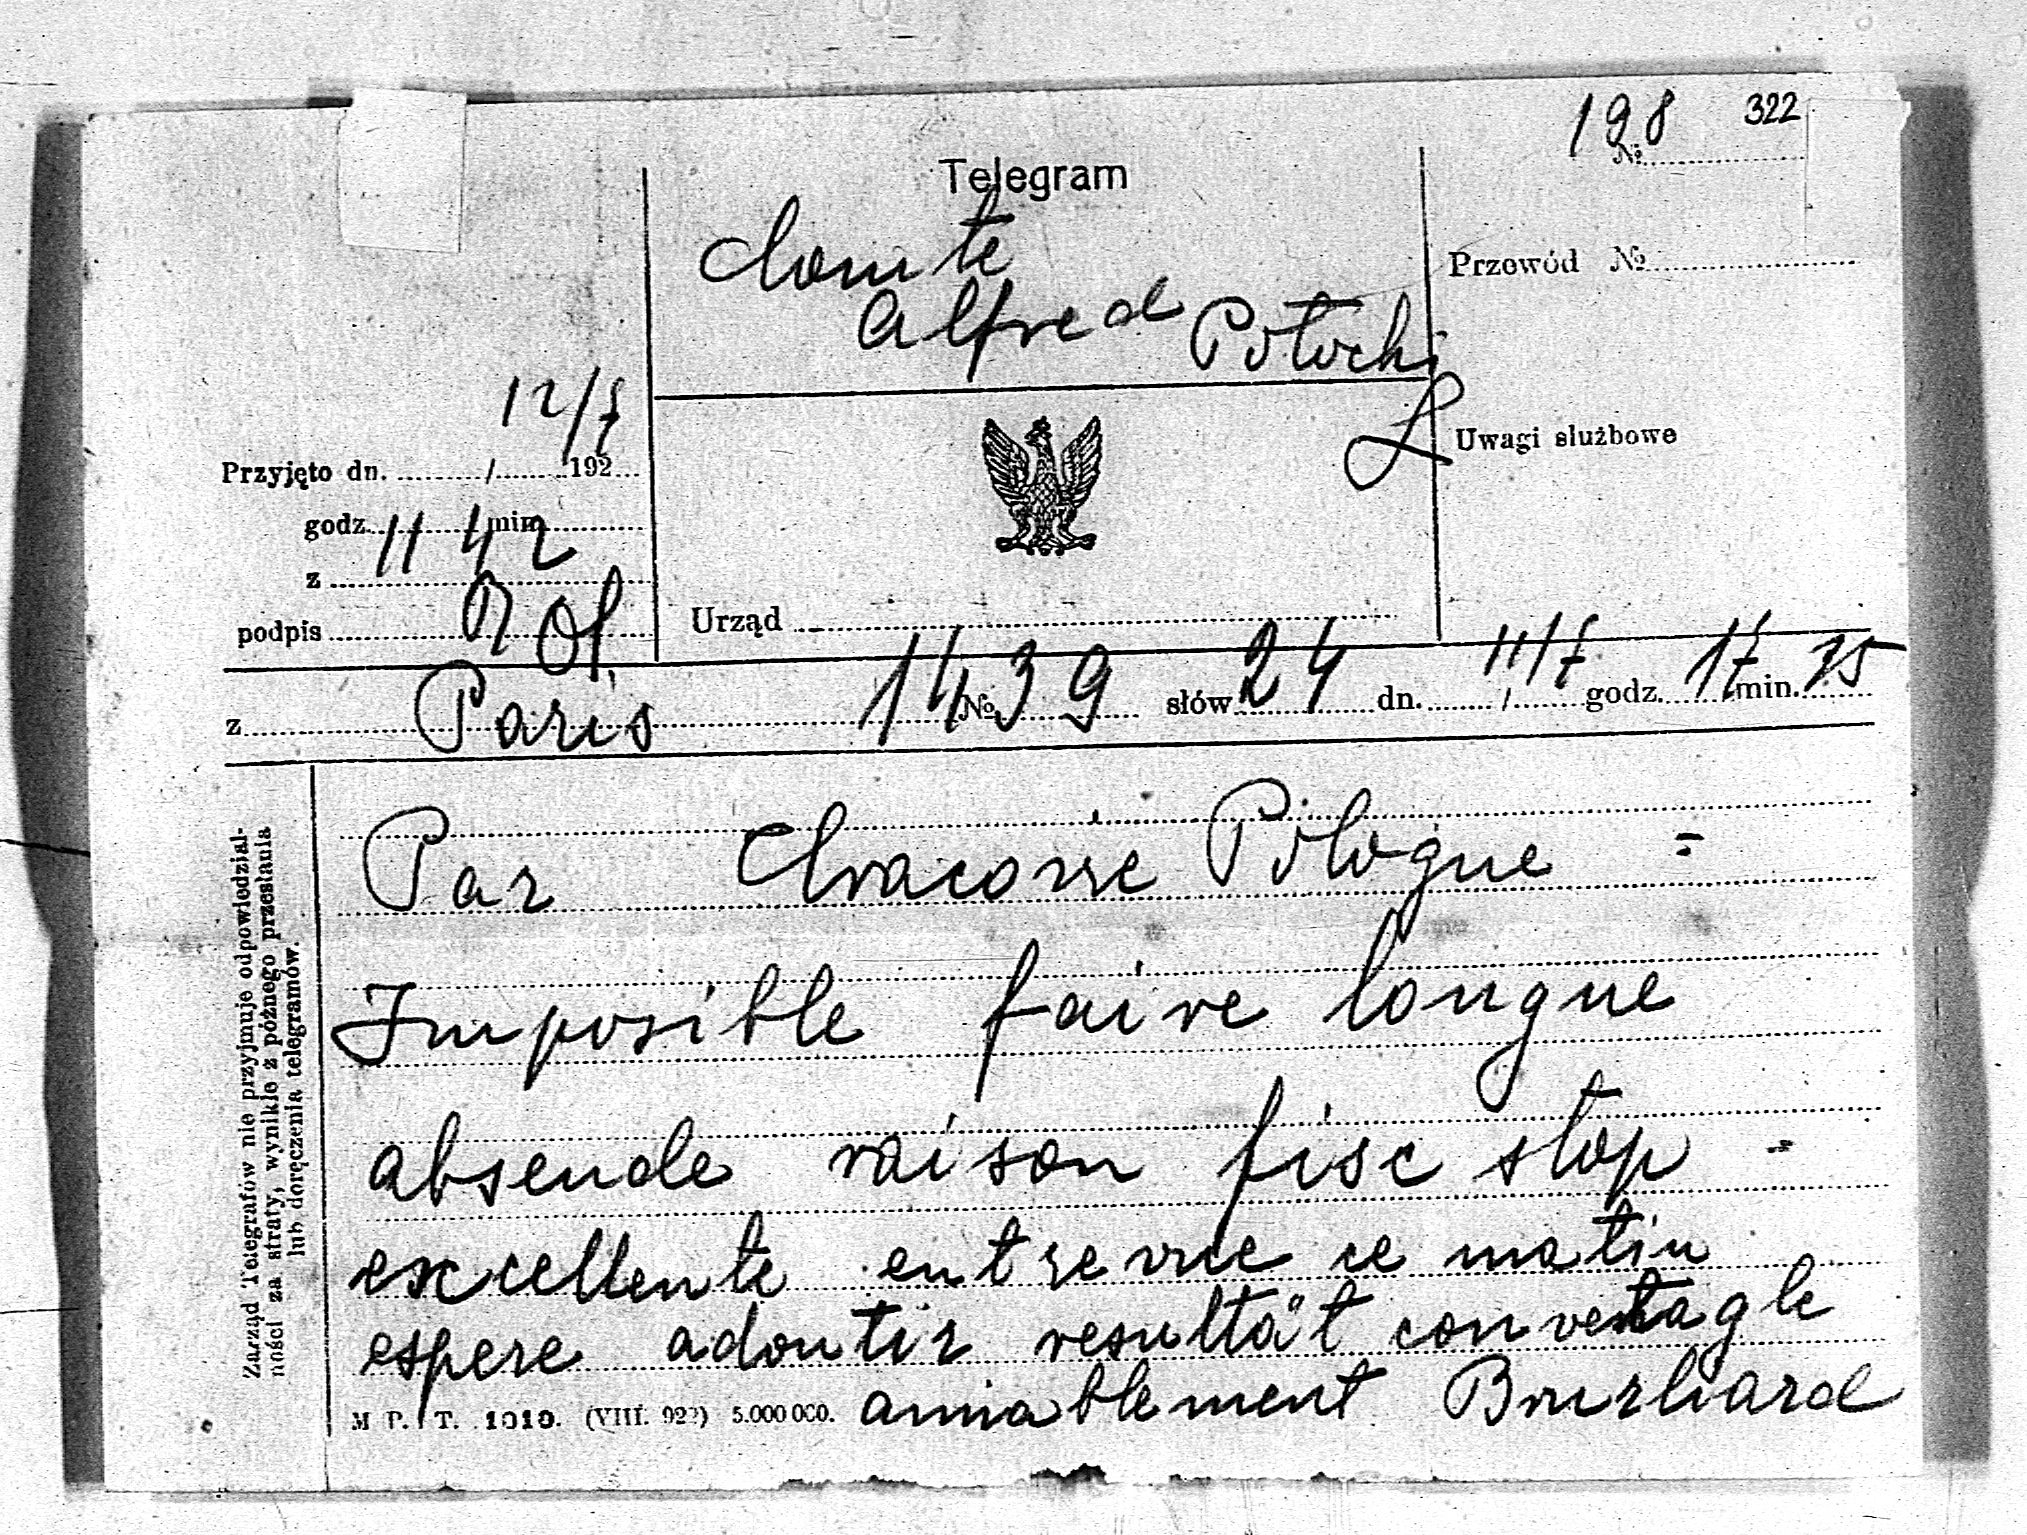 198 322
№
Telegram
Comte
Alfred Potocki
Przewód №
12/7
Przyjęto dn. / 192
Uwagi służbowe
godz. 11 min 42
z
podpis
Urząd
z Paris № 1439 słów 24 dn. 11/7 godz. 17 min. 35
Par Cracovie Pologne =
Imposible faire longue
absende raison fisc stop -
excellente entrevue ce matin
espere adoutir resultat conventagle
amiablement Bourhard
M P. T. 1010. (VIII. 922) 5.000 000.
Zarząd Telegrafów nie przyjmuje odpowiedzial-
ności za straty, wynikłe z późnego przesłania
lub doręczenia telegramów.